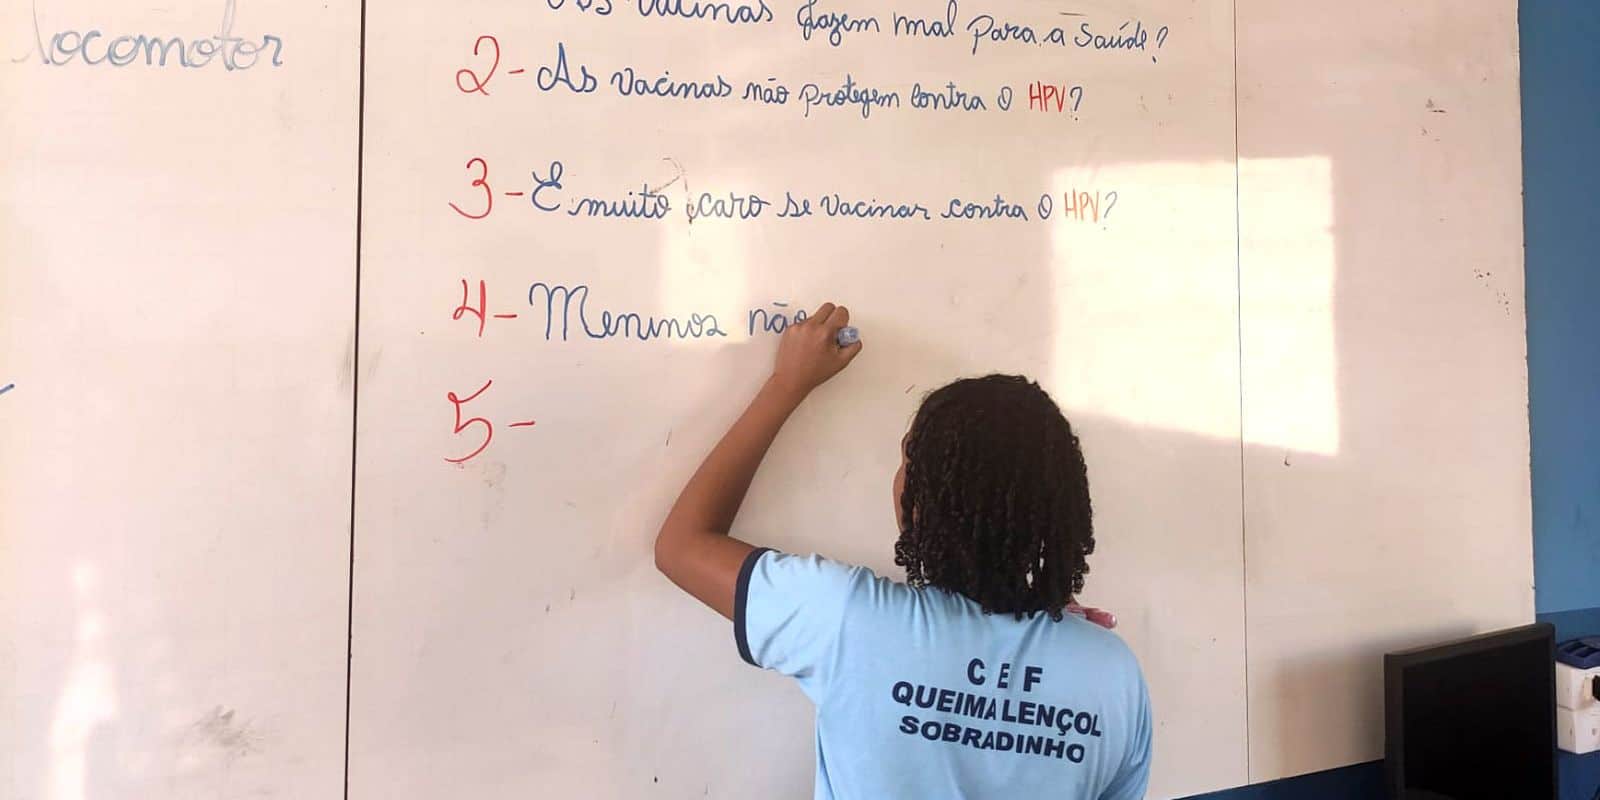 locomotor
vacinas fazem mal para a saúde?
2- As vacinas não protegem contra o HPV?
3- É muito caro se vacinar contra o HPV?
4- Meninos não
5-
CEF
QUEIMA LENÇOL
SOBRADINHO